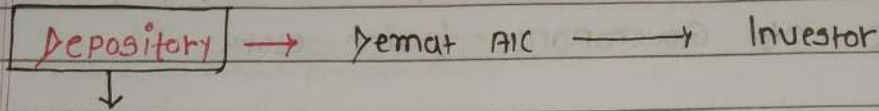 Depository → Demat A/C → Investor
↓